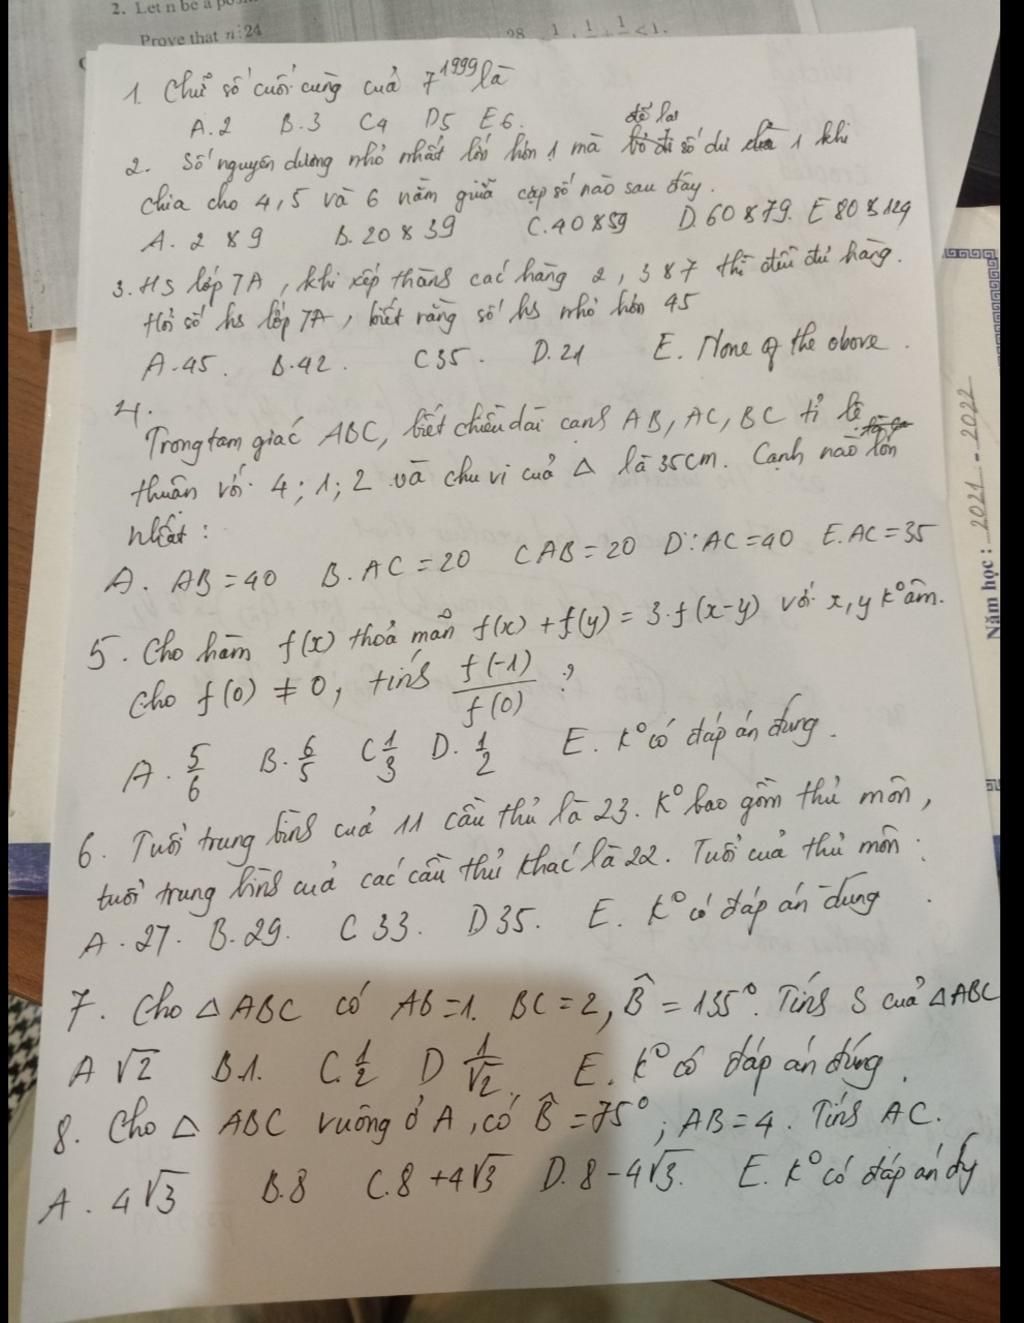 2. Let n be a
Prove that n⋮24
1. Chữ số cuối cùng của 7^1999 là
A. 2 B. 3 C 4 D 5 E 6.
để lại
2. Số nguyên dương nhỏ nhất lớn hơn 1 mà số dư 1 khi
chia cho 4, 5 và 6 nằm giữa cặp số nào sau đây.
A. 2 & 9 B. 20 & 39 C. 40 & 59 D. 60 & 79. E 80 & 124
3. HS lớp 7A, khi xếp thành các hàng 2, 3 & 7 thì đều đủ hàng.
Hỏi số hs lớp 7A, biết rằng số hs nhỏ hơn 45
A. 45. B. 42. C 35. D. 21 E. None of the above.
4.
Trong tam giác ABC, biết chiều dài cạnh AB, AC, BC tỉ lệ
thuận với 4; 1; 2 và chu vi của △ là 35cm. Cạnh nào lớn
nhất:
A. AB = 40 B. AC = 20 C AB = 20 D: AC = 40 E. AC = 35
5. Cho hàm f(x) thoả mãn f(x) + f(y) = 3.f(x-y) với x, y k° âm.
Cho f(0) ≠ 0, tính f(-1)/f(0) ?
A. 5/6 B. 6/5 C 1/3 D. 1/2 E. K° có đáp án đúng.
6. Tuổi trung bình của 11 cầu thủ là 23. K° bao gồm thủ môn,
tuổi trung bình của các cầu thủ khác là 22. Tuổi của thủ môn:
A. 27. B. 29. C 33. D 35. E. K° có đáp án đúng
7. Cho △ABC có AB = 1. BC = 2, B̂ = 135°. Tính S của △ABC
A √2 B. 1. C. 1/2 D 1/√2. E. K° có đáp án đúng.
8. Cho △ ABC vuông ở A, có B̂ = 75°; AB = 4. Tính AC.
A. 4√3 B. 8 C. 8 + 4√3 D. 8 - 4√3. E. K° có đáp án
Năm học: 2021 - 2022